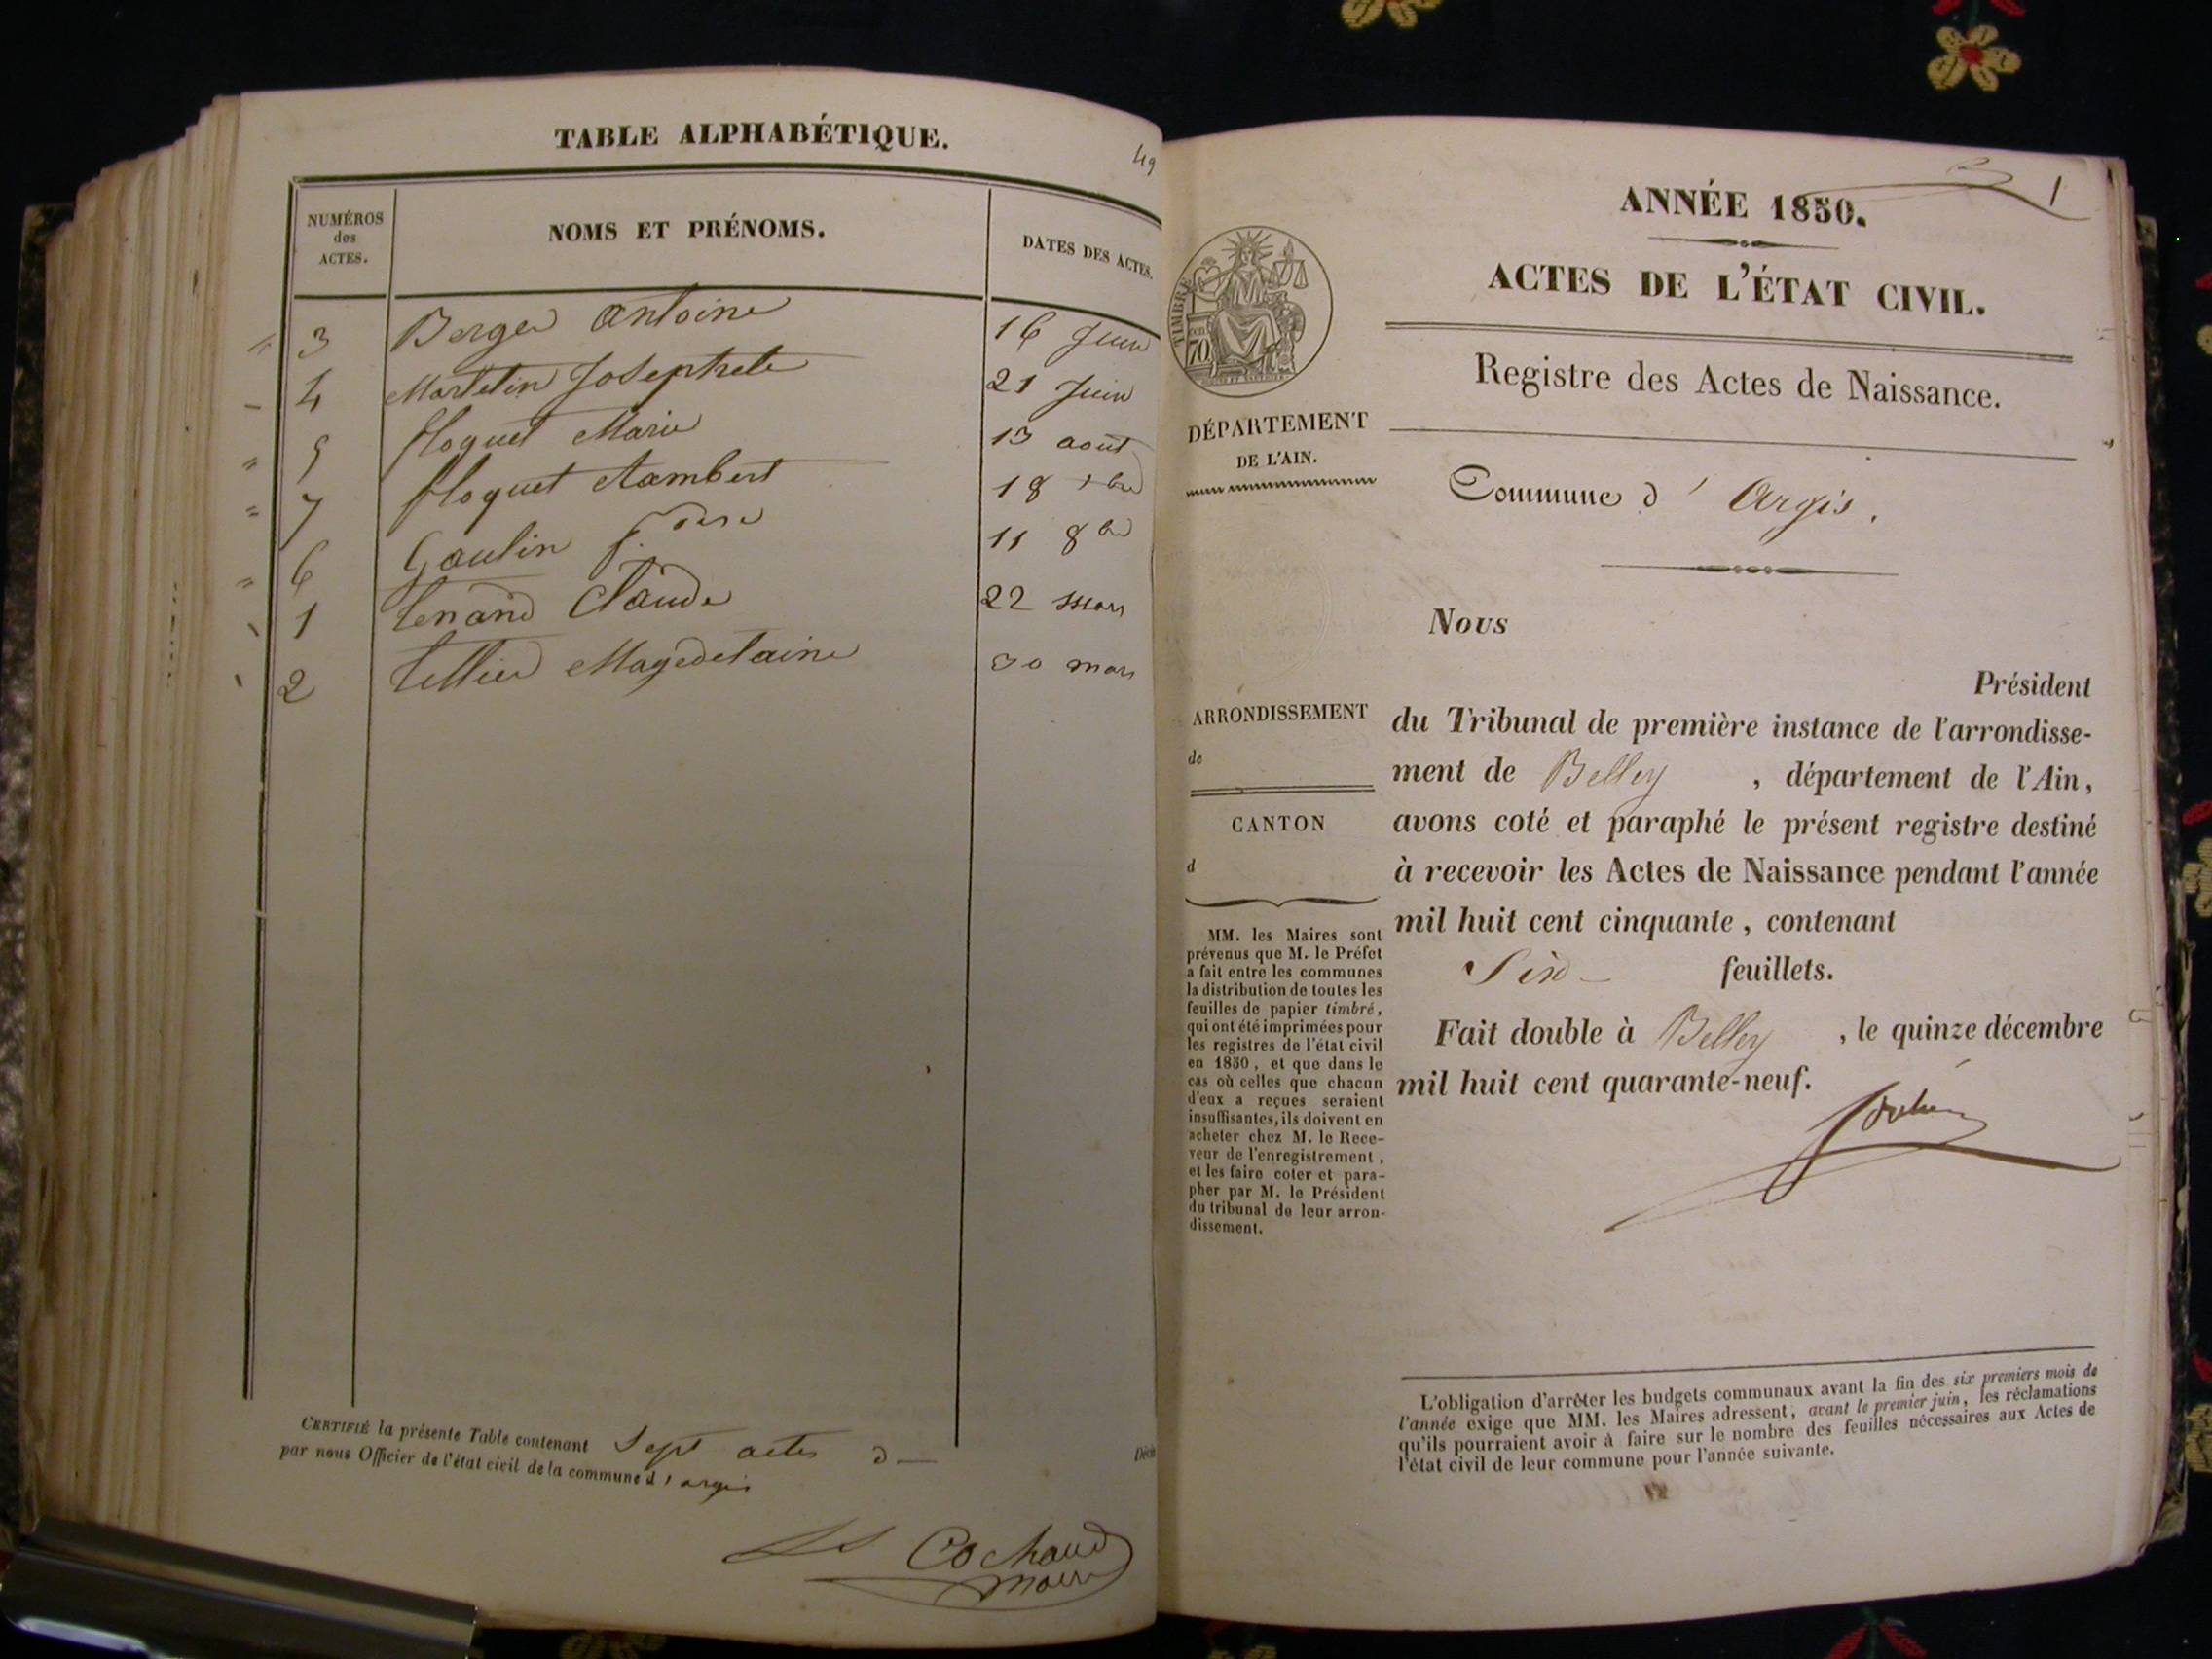 TABLE ALPHABÉTIQUE.
49
NUMÉROS
des
ACTES.
NOMS ET PRÉNOMS.
DATES DES ACTES.
3 Berger Antoine 16 Juin
4 Martelin Josephete 21 Juin
5 floquet Marie 13 aout
7 floquet Rambert 18
6 Gaulin f. 11 8bre
1 tenand Claude 22 Mars
2 tellier Magedelaine 30 mars
CERTIFIÉ la présente Table contenant Sept actes d
par nous Officier de l'état civil de la commune d'argis
Cochaud
maire
1
ANNÉE 1850.
ACTES DE L'ÉTAT CIVIL.
Registre des Actes de Naissance.
TIMBRE
70
DÉPARTEMENT
DE L'AIN.
Commune d' Argis.
Nous
Président
du Tribunal de première instance de l'arrondisse-
ment de Belley , département de l'Ain,
avons coté et paraphé le présent registre destiné
à recevoir les Actes de Naissance pendant l'année
mil huit cent cinquante, contenant
Six feuillets.
Fait double à Belley , le quinze décembre
mil huit cent quarante-neuf.
ARRONDISSEMENT
de
CANTON
d
MM. les Maires sont
prévenus que M. le Préfet
a fait entre les communes
la distribution de toutes les
feuilles de papier timbré,
qui ont été imprimées pour
les registres de l'état civil
en 1850, et que dans le
cas où celles que chacun
d'eux a reçues seraient
insuffisantes, ils doivent en
acheter chez M. le Rece-
veur de l'enregistrement,
et les faire coter et para-
pher par M. le Président
du tribunal de leur arron-
dissement.
L'obligation d'arrêter les budgets communaux avant la fin des six premiers mois de
l'année exige que MM. les Maires adressent, avant le premier juin, les réclamations
qu'ils pourraient avoir à faire sur le nombre des feuilles nécessaires aux Actes de
l'état civil de leur commune pour l'année suivante.